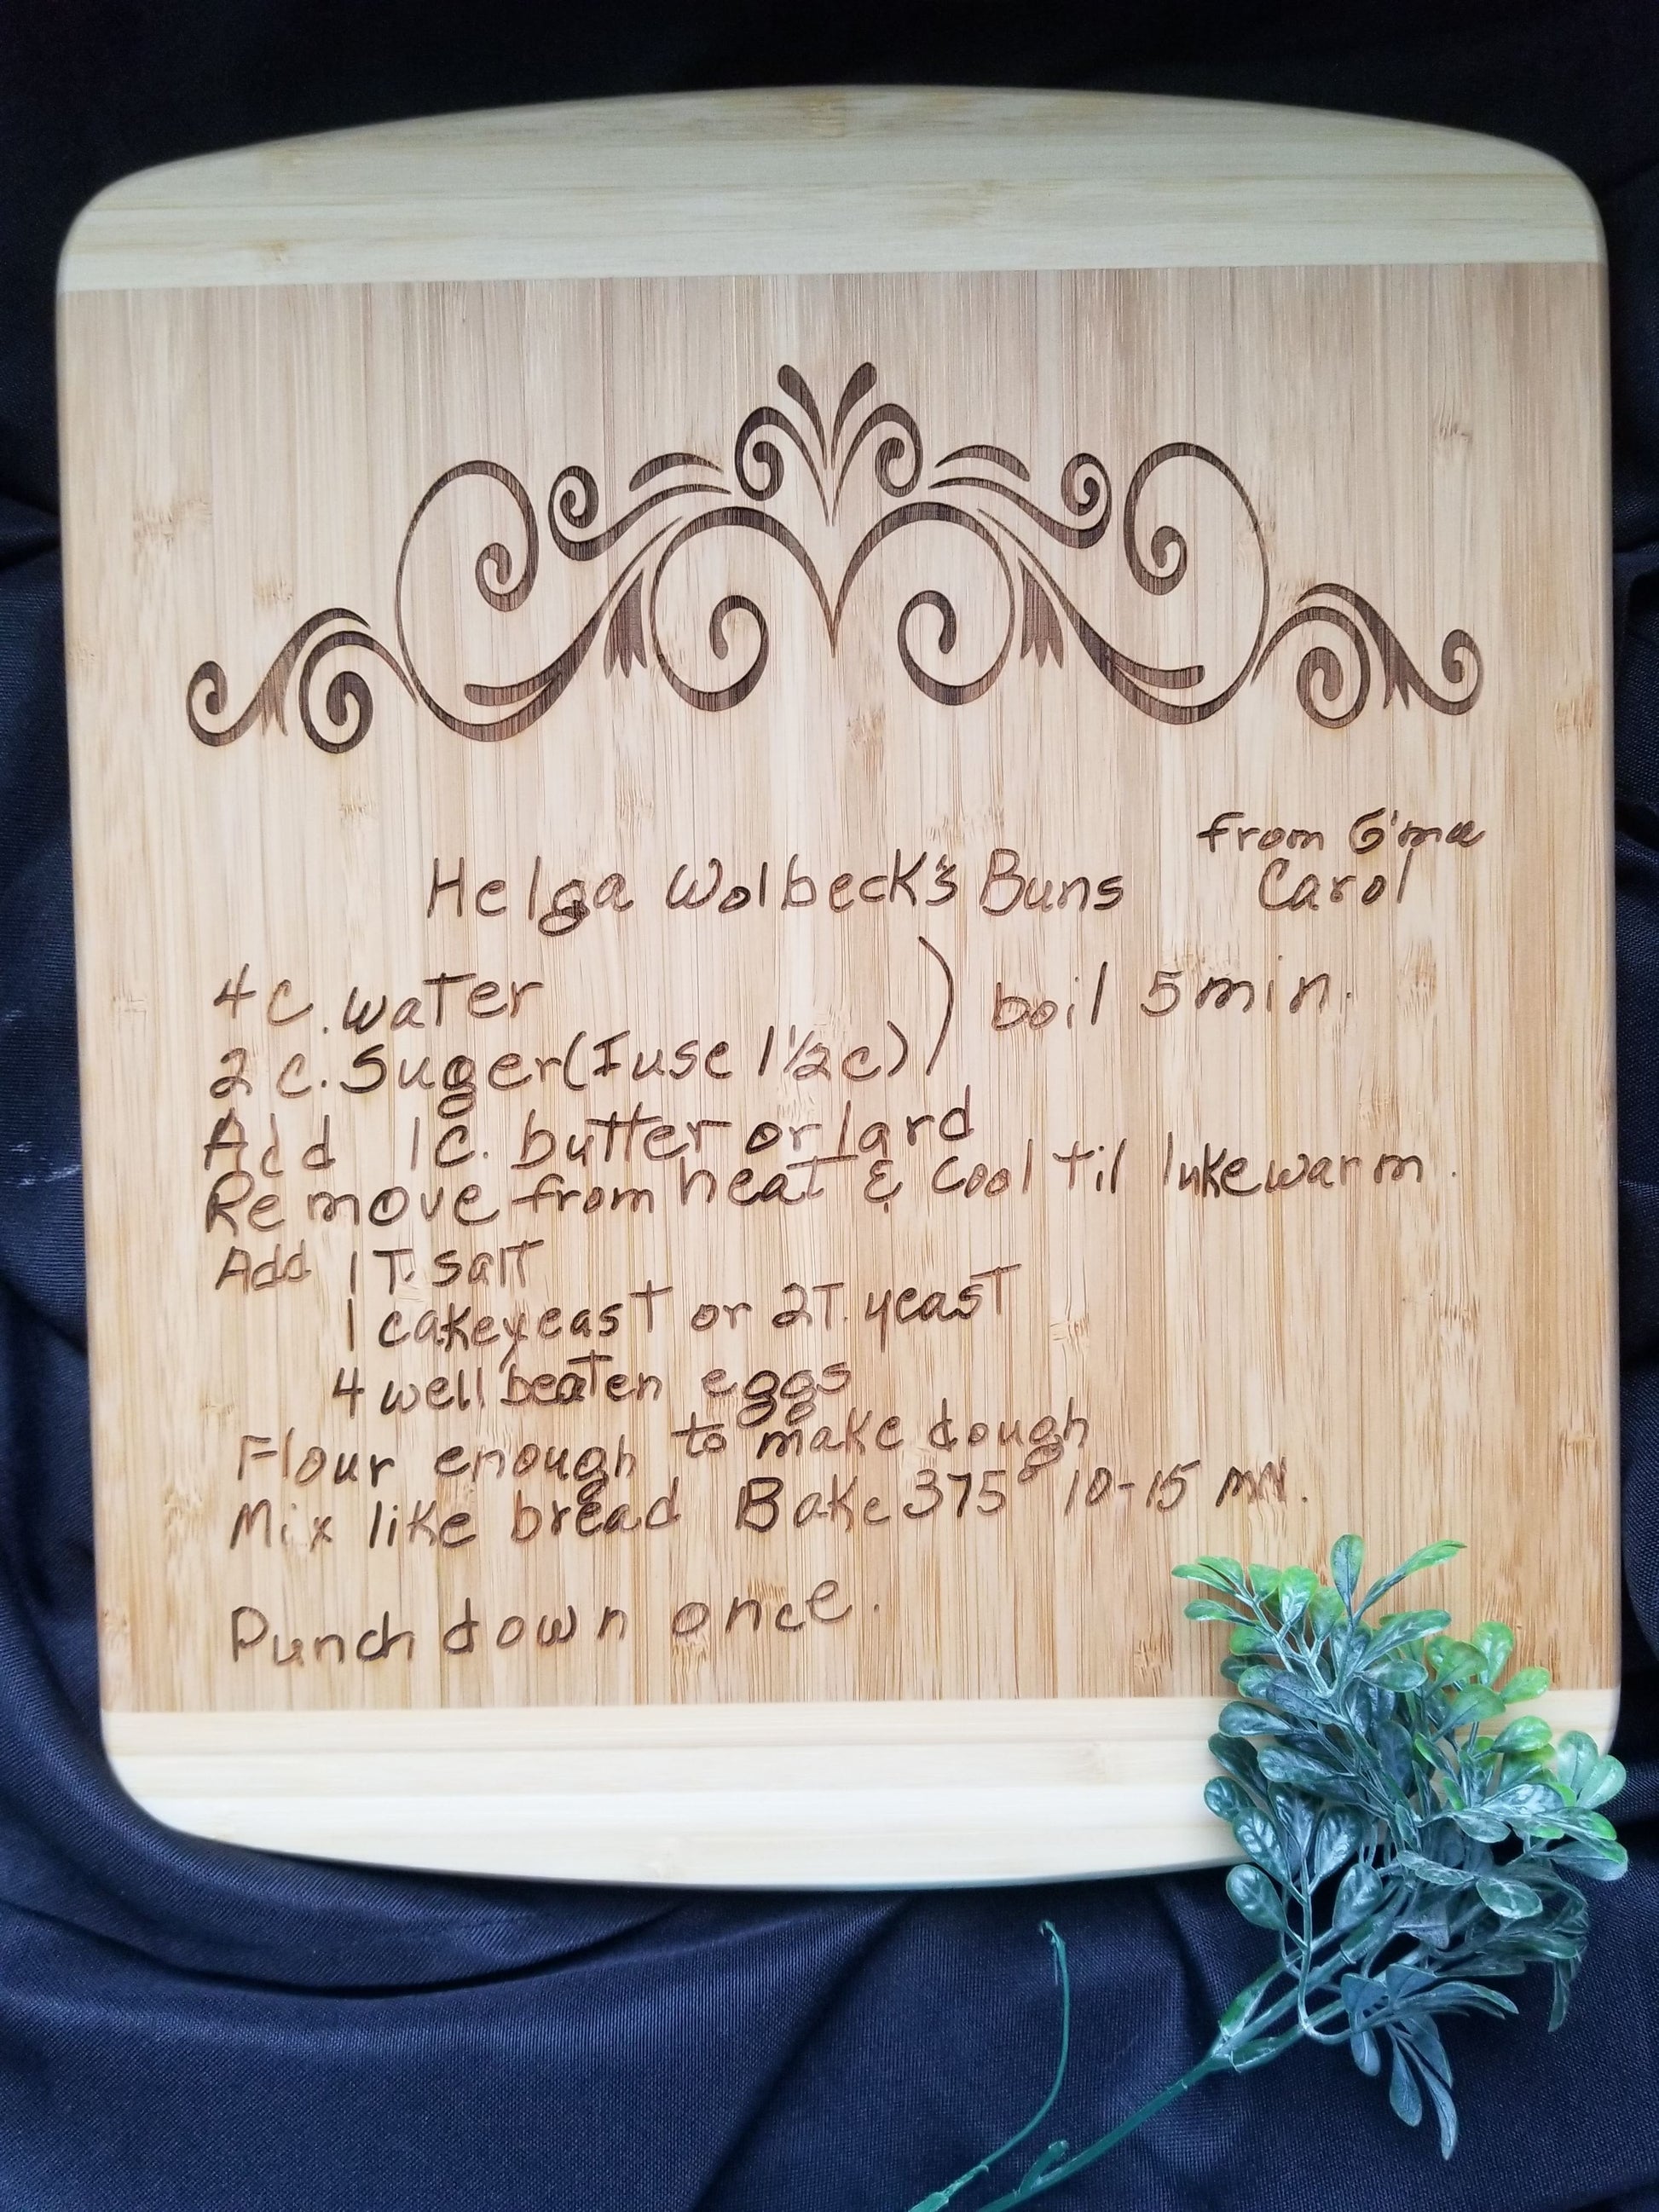 from G'ma
Helga Wolbeck's Buns Carol
4 C. water
2 C. Suger (I use 1 1/2 c) ) boil 5 min.
Add 1 C. butter or lard
Remove from heat & Cool til lukewarm.
Add 1 T. salt
1 cake yeast or 2 T. yeast
4 well beaten eggs
Flour enough to make dough
Mix like bread Bake 375° 10-15 min.
Punch down once.